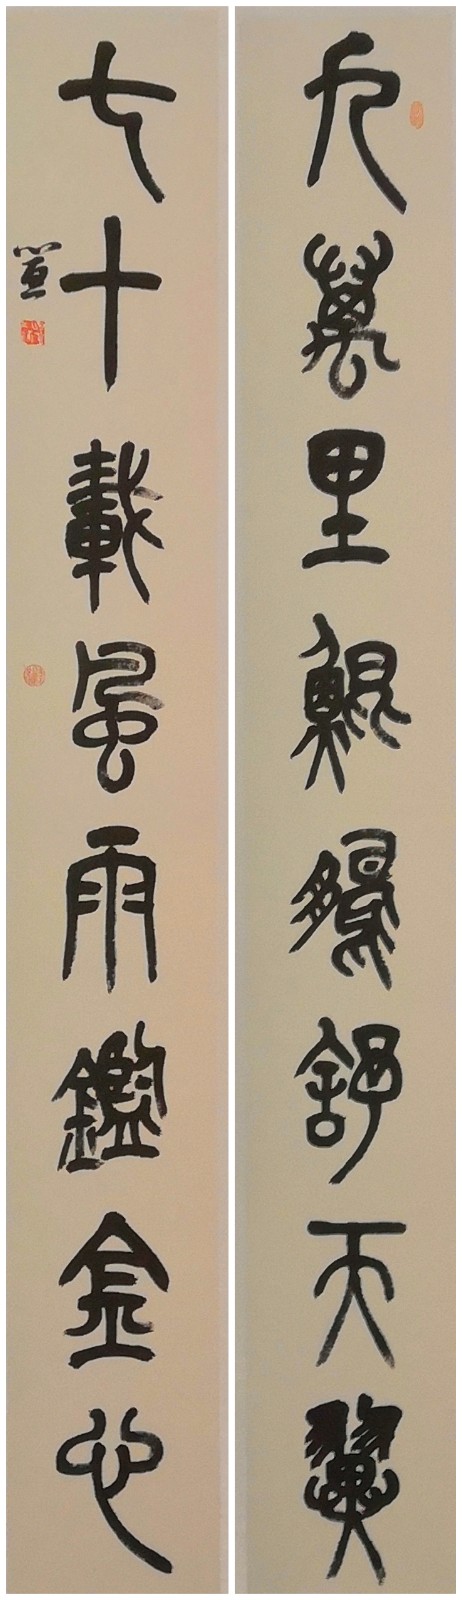 九萬里鯤鵬舒天翼
七十載風雨鑑金心